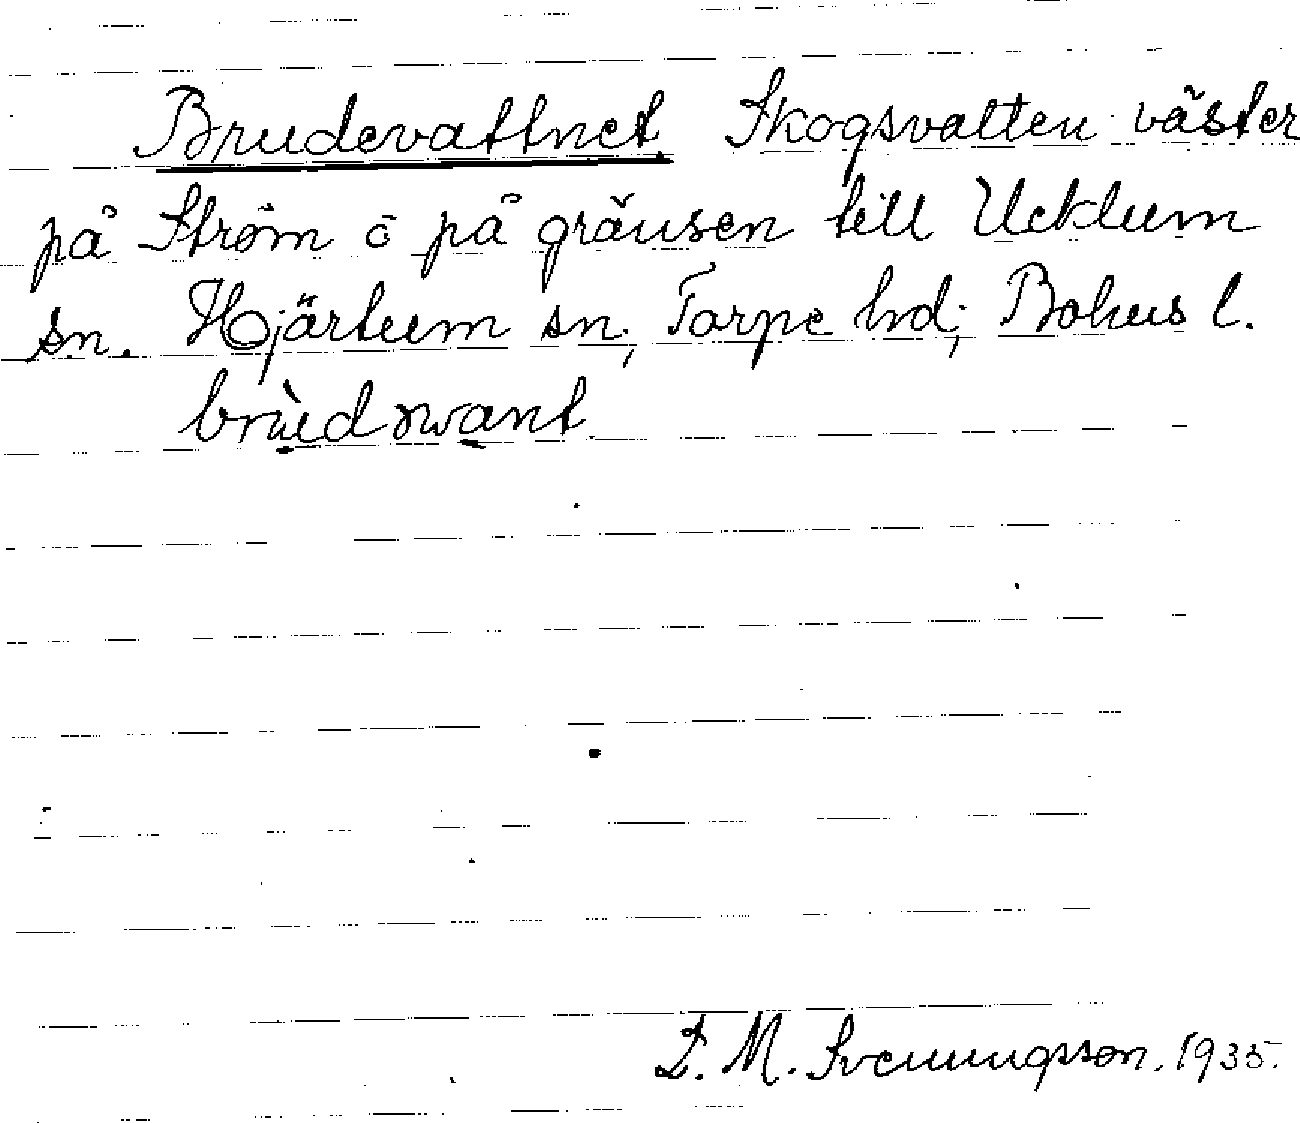 Brudevattnet. Skogsvatten väster
på Ström ō på gränsen till Ucklum
sn. Hjärtum sn; Torpe hd; Bohus l.
L. M. Svenungsson. 1935.